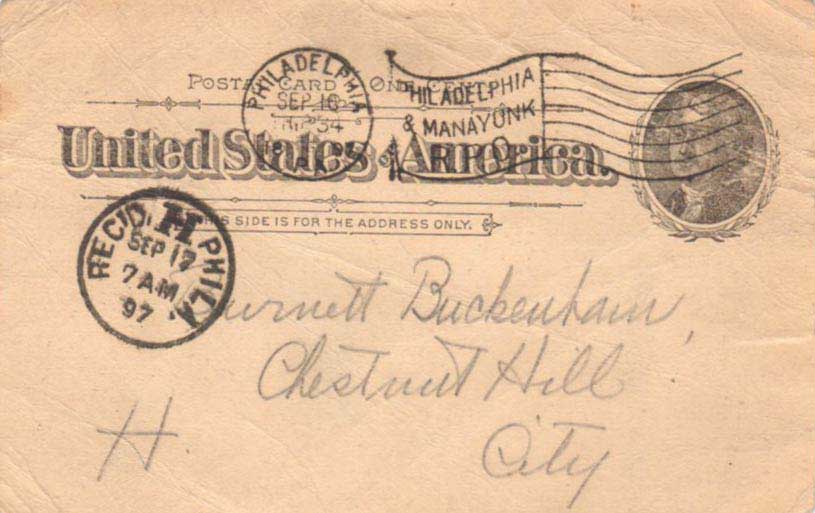 POSTAL CARD ONE CENT
United States of America.
THIS SIDE IS FOR THE ADDRESS ONLY.
PHILADELPHIA
SEP 16
PA.
PHILADELPHIA
& MANAYUNK
R.P.O.
REC'D. H PHILA
SEP 17
7 AM
97
Burnett Buckenham,
Chestnut Hill
H. City